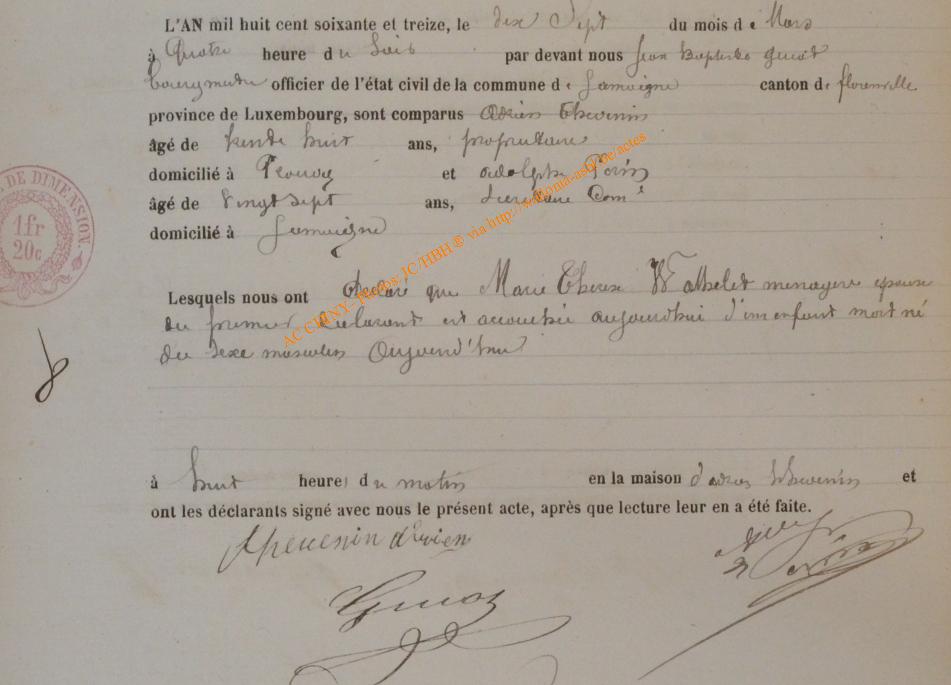 L'AN mil huit cent soixante et treize, le dix Sept du mois de Mars
à Quatre heure du Soir par devant nous Jean Baptiste Guiot
bourgmestre officier de l'état civil de la commune de Jamoigne canton de florenville
province de Luxembourg, sont comparus Adrien Thevenin
âgé de trente huit ans, propriétaire
domicilié à et Adolphe
âgé de Vingt sept ans,
domicilié à Jamoigne
DE DIMENSION.
1 fr
20c
Lesquels nous ont déclaré que Marie Therese Wathelet menagere épouse
du premier déclarant est accouchée aujourdhui d'un enfant mort né
du sexe masculin Aujourd'hui
à huit heure, du matin en la maison d'adrien thevenin et
ont les déclarants signé avec nous le présent acte, après que lecture leur en a été faite.
Thevenin adrien
Guiot
AC CHINY - Photos: JC/HBH ® via http://wallonia-asbl.be/actes